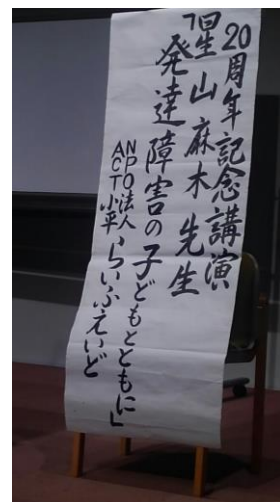 20周年記念講演
星山麻木先生
「発達障害の子どもとともに」
NPO法人
ACT小平らいふえいど